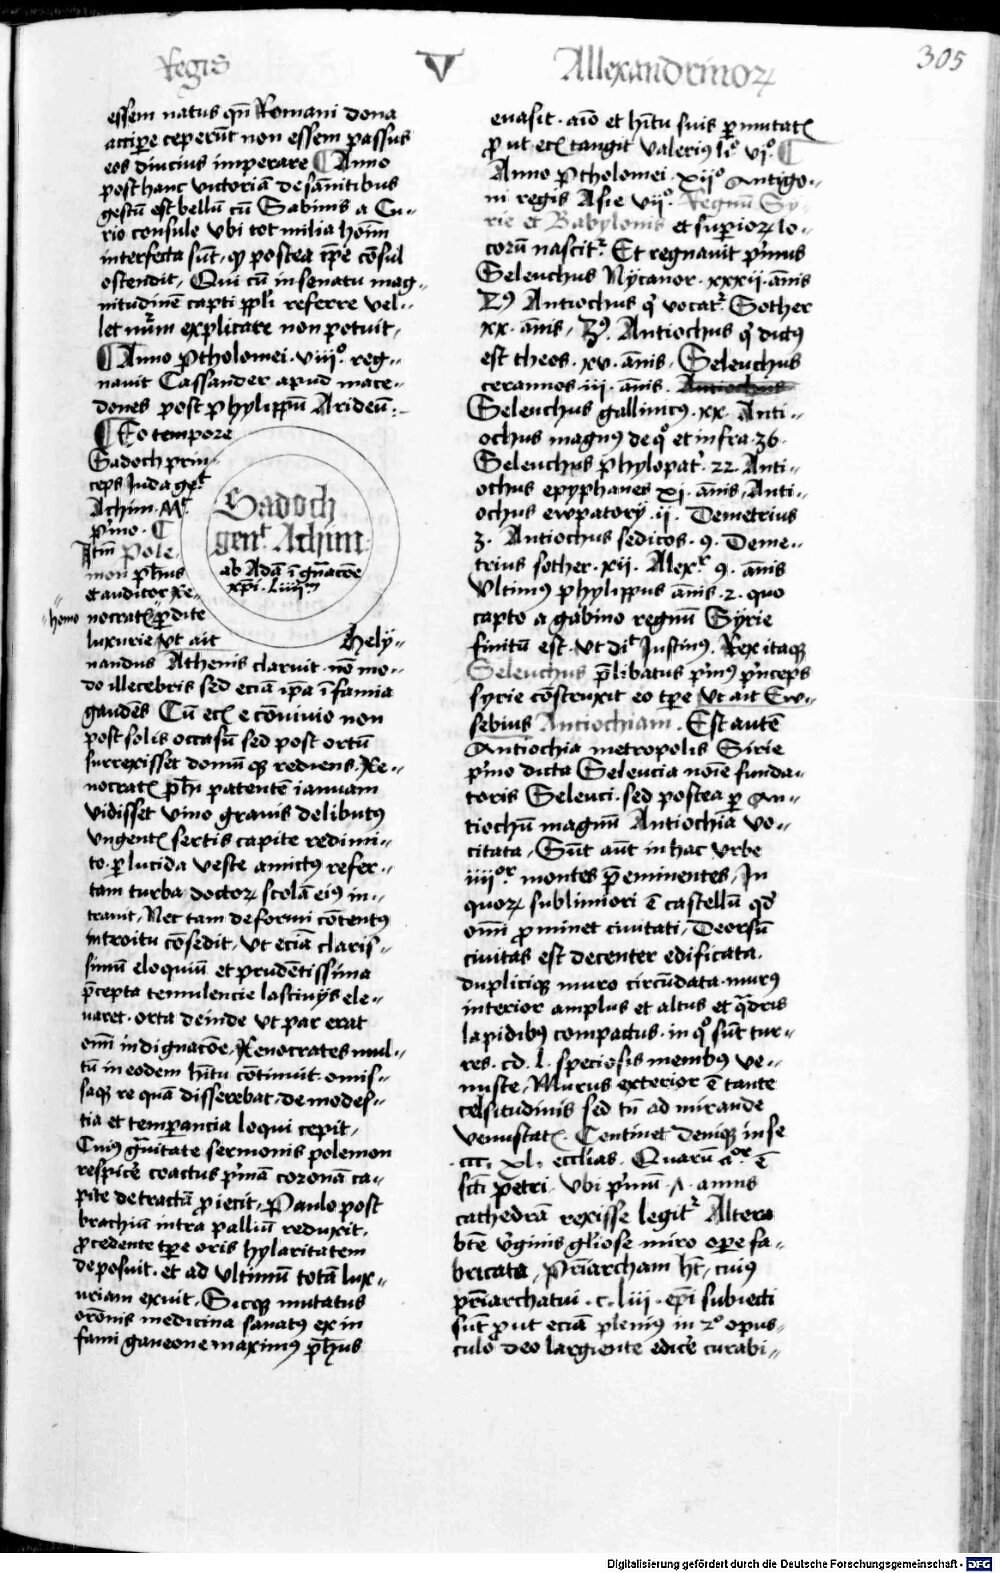 Regis V Allexandrinoꝝ 305
essem natus qn̄ Romani dona
accip̲e ceper̄ut non essem passus
eos diucius imperare ¶ Anno
post hanc victoriā de sānitibus
gestū est bellū cū Sabinis a Cu⸗
rio consule vbi tot milia hoīm
interfecta sūt, qͥ postea ip̄e cōsul
ostendit, Qui cū in senatu mag⸗
nitudinē capti ppl̄i referre vel⸗
let nūm explicare non potuit,
¶ Anno Ptholomei · viijº· reg⸗
nauit Cassander apud mace⸗
dones post Phylippū Arideū:
¶ Eo tempore
Sadoch prin⸗
ceps Iuda geͭ
Achim · Mͭ
pͥmo · ¶
Itm̄ Pole
mon ph̄us
et auditor Xe⸗
nocratꝭ p̲dite
homo
luxurie vt ait Hely⸗
Sadoch
genͭ Achim
ab Adā ī gn̄acōe
xp̄i · Liiijͭᵃ
nandus Athenis claruit · nō mo⸗
do illecebris sed eciā ip̄a īfamia
gaudēs Cū ecꝭ e cōuiuio non
post solis occasū sed post ortū
surrexisset domū qꝫ rediens, Xe⸗
nocratꝭ ph̄i patentē ianuam
vidisset vino grauis delibutꝰ
vngentꝭ sertis capite redimi⸗
to, p̲lucida veste amictꝰ refer⸗
tam turba doctoꝝ scolā eiꝰ in⸗
trauit, Nec tam deformi cōtentꝰ
introitu cōsedit, vt eciā claris⸗
simū eloquiū et prudētissima
p̄cepta temulencie lasciuijs ele⸗
uaret · orta deinde vt par erat
om̄i indignacōe, Xenocrates mul⸗
tū in eodem h̄itu cōtinuit · omis⸗
saqꝫ re quā disserebat, de modes⸗
tia et temp̲ancia loqui cepit,
Cuiꝰ gͣuitate sermonis polemon
respicēr coactus pͥmā coronā ca⸗
pite detractā ꝓiecit, Paulo post
brachiū intra palliū reduxit,
ꝓcedente tp̄e oris hylaritatem
deposuit · et ad vltimū totā lux⸗
uriam exuit, Sicqꝫ mutatus
orōnis medicina sanatꝰ ex in
fami ganeone maximꝰ ph̄us
euasit · aīo et h̄itu suis p̲mutatꝭ
ꝓut ecꝭ tangit Valeriꝰ liº vjº. ¶
Anno Ptholomei · xijº Antigo⸗
ni regis Asie vijº. Regnū Sy⸗
rie et Babylonis et sup̲ioꝝ lo⸗
corū nascitͬ Et regnauit pͥmus
Seleuchus Nycanor · xxxij · ānis
2ꝰ Antiochus qͥ vocatͬ Sother
xx · ānis, 3ꝰ. Antiochus qͥ dictꝰ
est theos · xv · ānis, Seleuchus
cerannos · iij · ānis.
Seleuchus gallinicꝰ · xx · Anti⸗
ochus magnus de qº et infra · 36 ·
Seleuchus phylopatͬ 22 · Anti⸗
ochus epyphanes xj · ānis, Anti⸗
ochus ewpatory · ij · Demetrius
3 · Antiochus sedicos · 9 · Deme⸗
trius sother · xij · Alexͬ 9 · ānis
Vltimꝰ phylippus ānis · 2 · quo
capto a gabino regnū Syrie
finitū est · vt diͭ Iustinꝰ. Rex itaqꝫ
Seleuchus p̄libatus pͥmꝰ pͥnceps
syrie cōstruxit eo tp̄e vt ait Ew⸗
sebius Antiochiam. Est autē
Antiochia metropolis Sirie
pͥmo dicta Seleucia noīe funda⸗
toris Seleuci · sed postea p̲ An⸗
tiochū magnū Antiochia vo⸗
citata, Sūt aūt in hac vrbe
iiijᵒʳ montes p̄eminentes, In
quoꝝ sublimiori ē castellū qd̄
om̄i ꝓminet ciuitati, Deorsū
ciuitas est decenter edificata,
dupliciqꝫ muro circūdata · murꝰ
interior amplus et altus et qͣdris
lapidibꝰ compactus · in qº sūt tur⸗
res · cd · l · speciosis membꝰ ve⸗
nuste, Murus exterior ē tante
celsitudinis sed tn̄ ad mirande
venustatꝭ. Continet deniqꝫ in se
ccc · xl · eccl̄ias. Quarū aᵒʳ ē
scī Petri · Vbi pͥmū · ʌ · annis
cathedrā rexisse legitͬ Altera
btē vͥginis gl̄iose miro op̲e fa⸗
bricata, Pr̄iarcham h̄t, cuiꝰ
pr̄iarchatui · c · liij · ep̄i subiecti
sūt ꝓut eciā pleniꝰ in 2º opus⸗
culo deo largiente edicēr curabi⸗
Digitalisierung gefördert durch die Deutsche Forschungsgemeinschaft · DFG